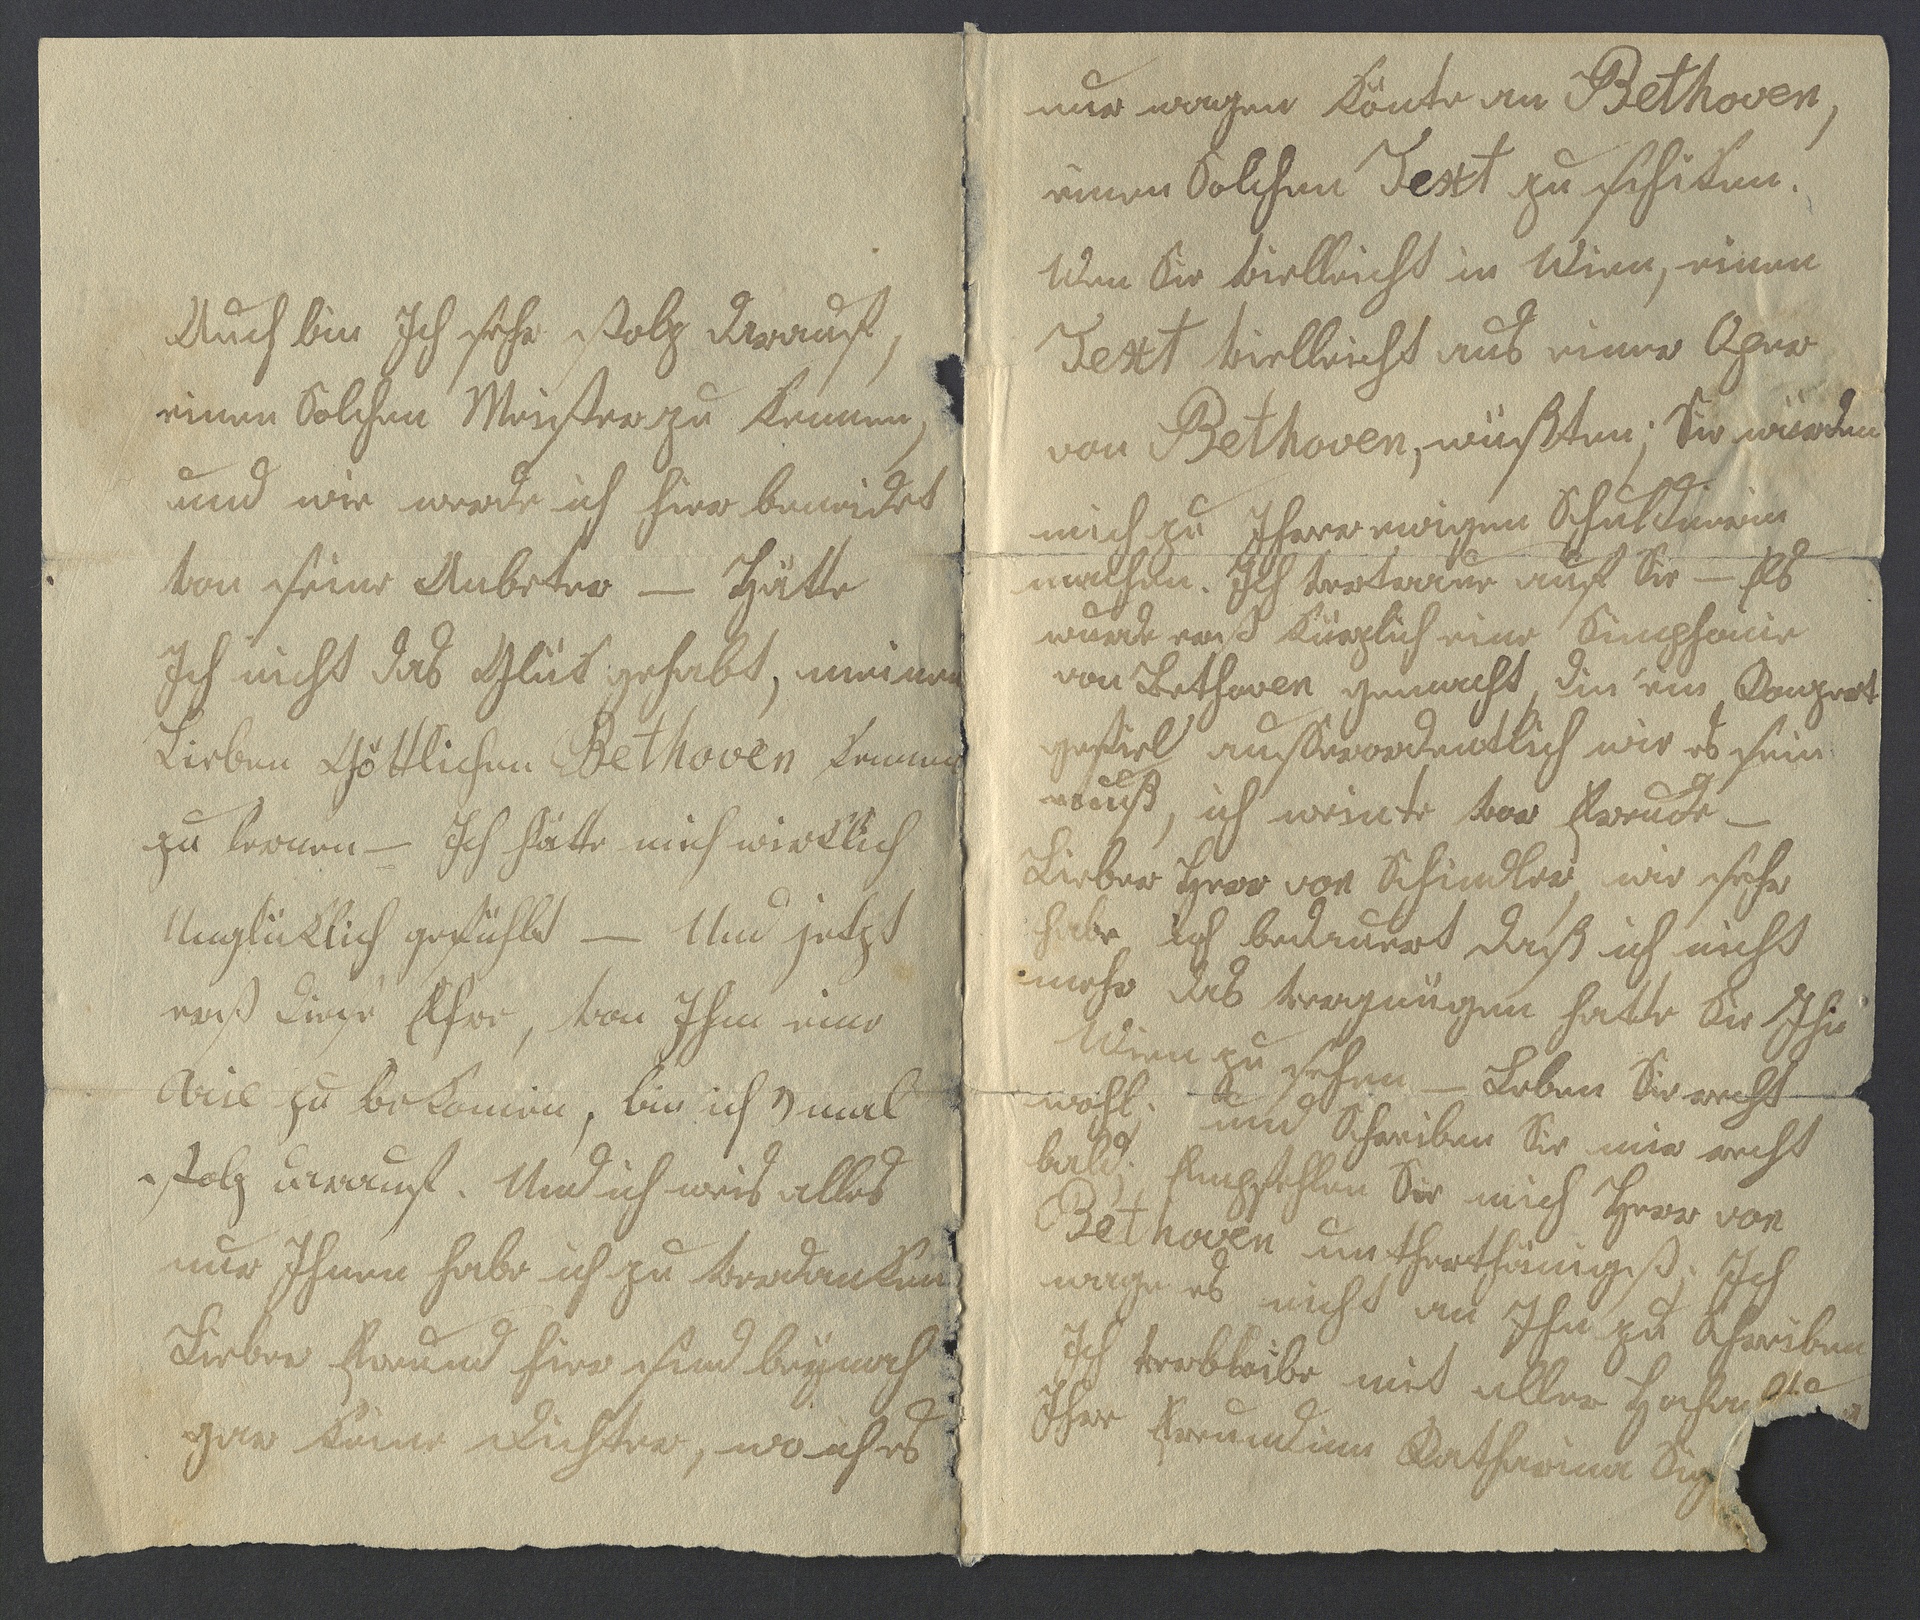 Auch bin Ich sehr stolz darauf,
einen Solchen Meister zu kennen,
und wie werde ich hier beneidet
von seine Anbeter — Hätte
Ich nicht das Glük gehabt, meinen
Lieben Göttlichen Bethoven kennen
zu lernen — Ich hätte mich wirklich
Unglüklich gefühlt — Und jetzt
erst diese Ehre, von Ihm eine
Arie zu bekomen, bin ich mal
stolz darauf. Und ich weis alles
nur Ihnen habe ich zu verdanken
Lieber Freund hier sind beynach
gar keine Dichter, wo ich es
nur wagen könte an Bethoven,
einen Solchen Text zu schiken.
Wen Sie vielleicht in Wien, einen
Text vielleicht aus einer Oper
von Bethoven, wüßten; Sie würden
mich zu Ihrer ewigen Schuldnerin
machen. Ich vertraue auf Sie — Es
wurde erst kürzlich eine Simphonie
von Bethoven gemacht, die im Konzert
gefiel ausserordentlich wie es sein
muß, ich weinte vor Freude —
Lieber Herr von Schindler, wie sehr
habe ich bedauert daß ich nicht
mehr das vergnügen hatte Sie In
Wien zu sehen — Leben Sie recht
wohl; und Schreiben Sie mir recht
bald; Empfehlen Sie mich Herr von
Bethoven unterthänigst; Ich
wage es nicht an Ihn zu Schreiben
Ich verbleibe mit aller
Ihre Freundinn Katharina Sig